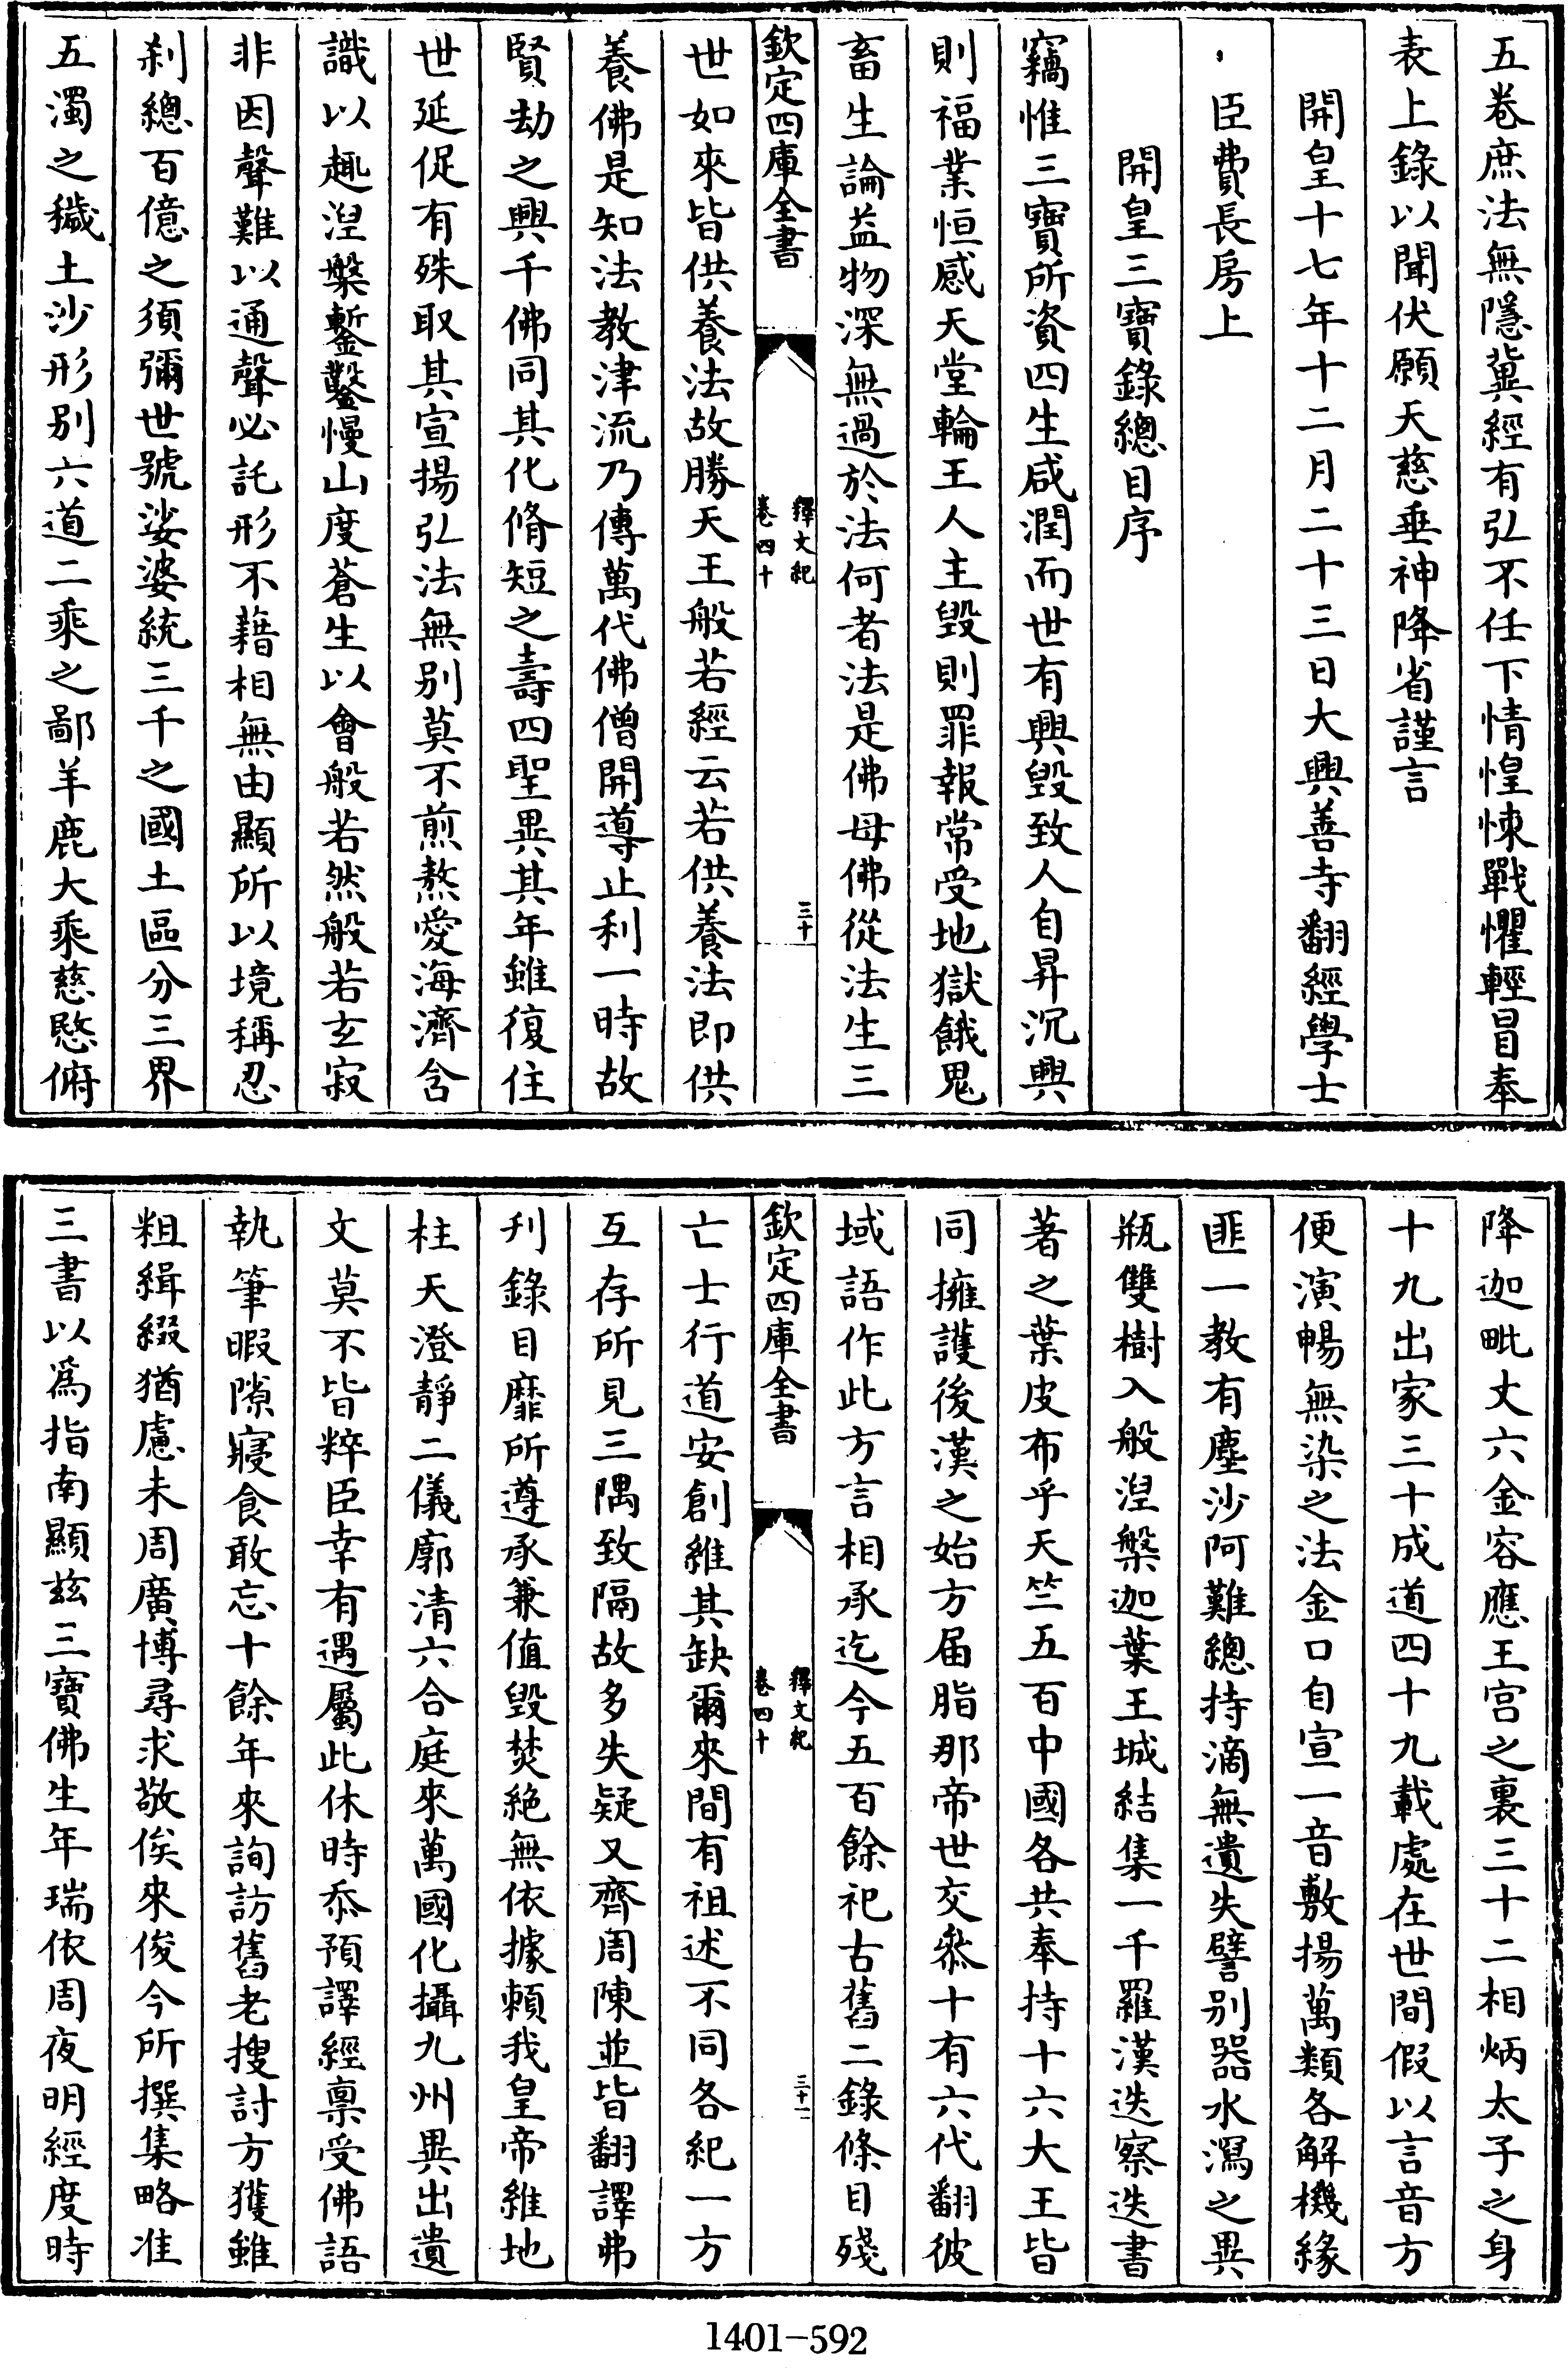 五卷庶法無隱冀經有弘不任下情惶悚戰懼輕冒奉
表上錄以聞伏願天慈垂神降省謹言
開皇十七年十二月二十三日大興善寺翻經學士
臣費長房上
開皇三寶錄總目序
竊惟三寶所資四生咸潤而世有興毀致人自昇沉興
則福業恒感天堂輪王人主毀則罪報常受地獄餓鬼
畜生論益物深無過於法何者法是佛母佛從法生三
欽定四庫全書
釋文紀
卷四十
三十
世如來皆供養法故勝天王般若經云若供養法即供
養佛是知法教津流乃傳萬代佛僧開導止利一時故
賢劫之興千佛同其化脩短之壽四聖異其年雖復住
世延促有殊取其宣揚弘法無別莫不煎熬愛海濟含
識以趣涅槃鏨鑿慢山度蒼生以會般若然般若玄寂
非因聲難以通聲必託形不藉相無由顯所以境稱忍
刹總百億之須彌世號娑婆統三千之國土區分三界
五濁之穢土沙形別六道二乘之鄙羊鹿大乘慈愍俯
降迦毗丈六金容應王宮之裏三十二相炳太子之身
十九出家三十成道四十九載處在世間假以言音方
便演暢無染之法金口自宣一音敷揚萬類各解機緣
匪一教有塵沙阿難總持滴無遺失譬別器水瀉之異
瓶雙樹入般涅槃迦葉王城結集一千羅漢迭察迭書
著之葉皮布乎天竺五百中國各共奉持十六大王皆
同擁護後漢之始方屆脂那帝世交叅十有六代翻彼
域語作此方言相承迄今五百餘祀古舊二錄條目殘
欽定四庫全書
釋文紀
卷四十
三十一
亡士行道安創維其缺爾來間有祖述不同各紀一方
互存所見三隅致隔故多失疑又齊周陳並皆翻譯弗
刋錄目靡所遵承兼值毀焚絕無依據頼我皇帝維地
柱天澄靜二儀廓清六合庭來萬國化攝九州異出遺
文莫不皆粹臣幸有遇屬此休時忝預譯經禀受佛語
執筆暇隙寢食敢忘十餘年來詢訪舊老搜討方獲雖
粗緝綴猶慮未周廣博尋求敬俟來俊今所撰集略准
三書以爲指南顯茲三寶佛生年瑞依周夜明經度時
1401-592